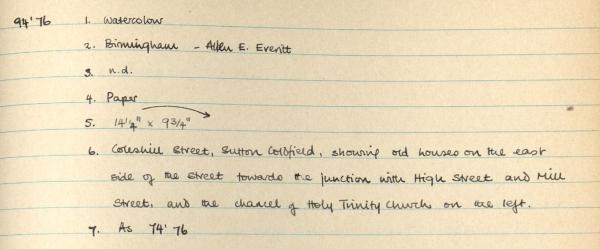 94'76 1. Watercolour
2. Birmingham - Allen E. Everitt
3. n.d.
4. Paper
5. 14¼" x 9¾"
6. Coleshill Street, Sutton Coldfield, showing old houses on the east
side of the street towards the junction with High Street and Mill
Street, and the chancel of Holy Trinity Church on the left.
7. As 74'76